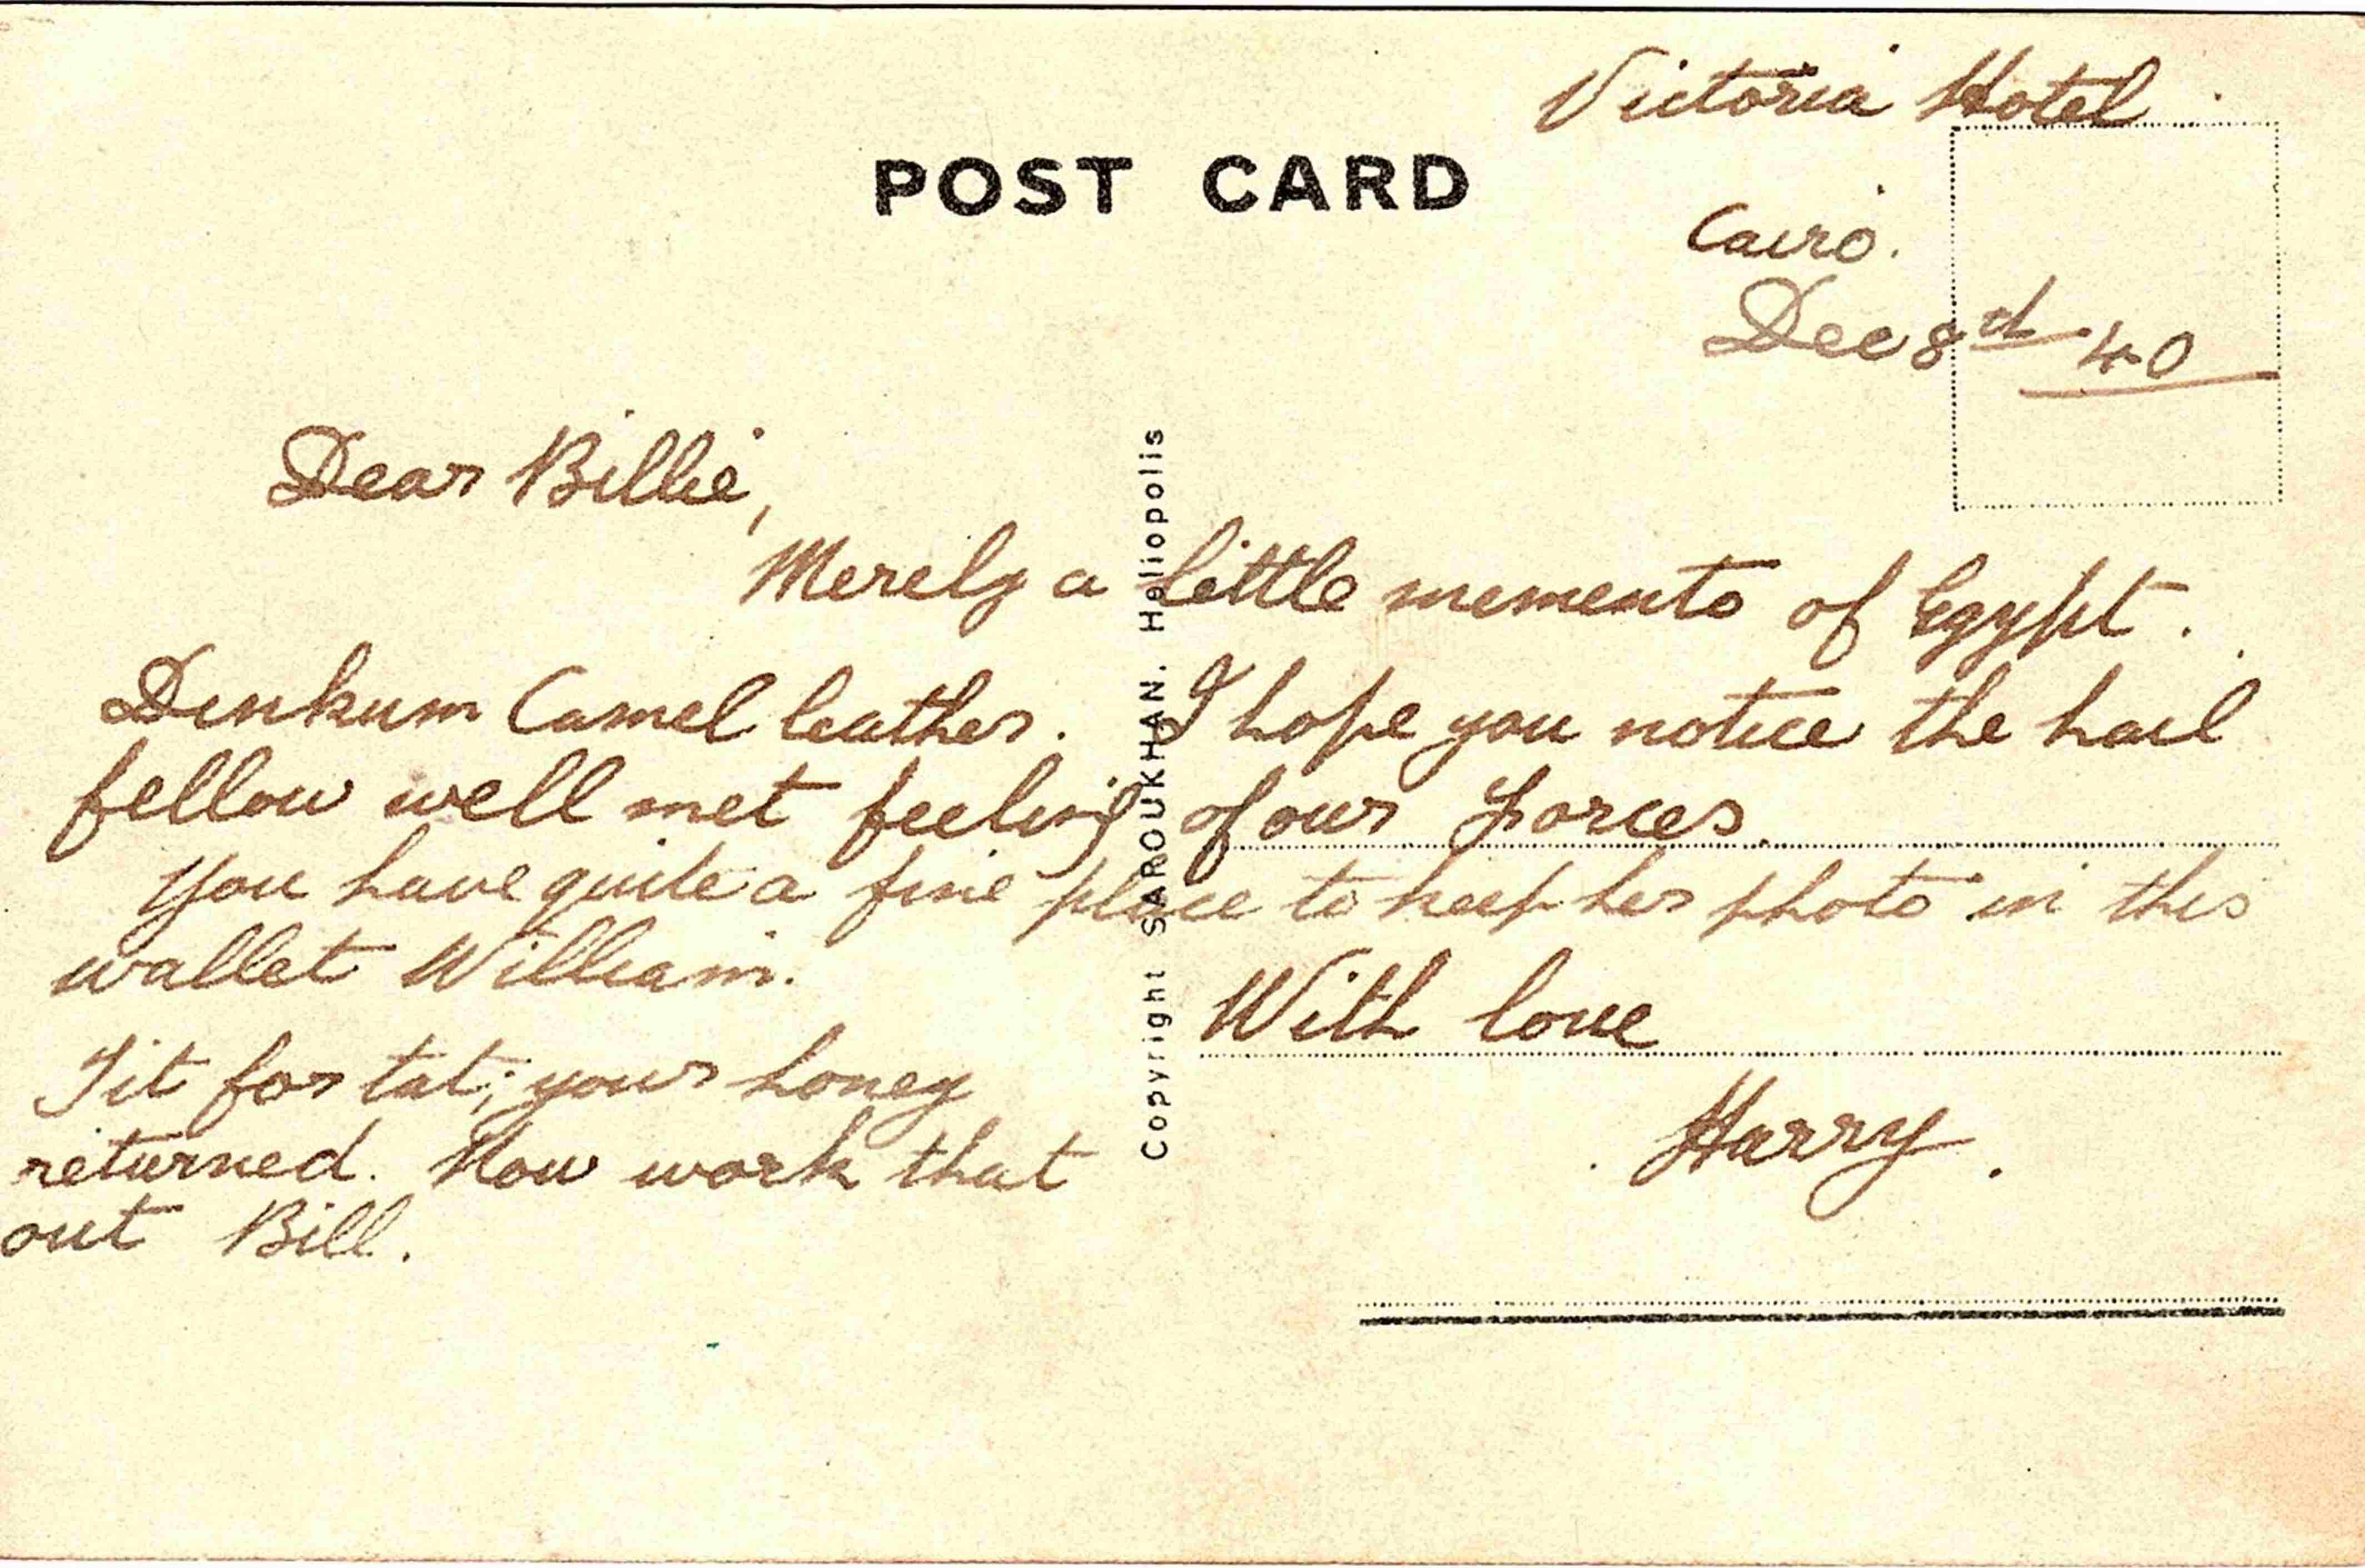 Victoria Hotel
POST CARD
Cairo.
Dec 8th 40
Dear Billie,
Merely a little memento of Egypt.
Dinkum Camel leather. I hope you notice the hail
fellow well met feeling of our Forces.
You have quite a fine place to keep her photo in this
wallet William.
With love
Tit for tat; your honey
Harry.
returned. Now work that
out Bill.
Copyright SAROUKHAN. Heliopolis